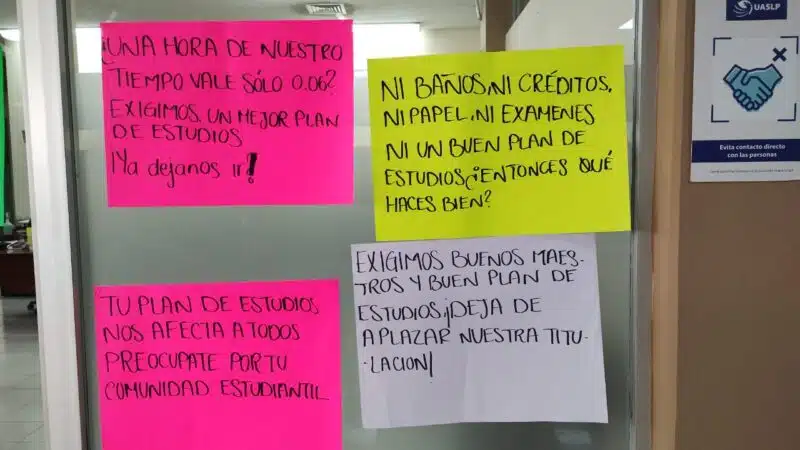 ¿UNA HORA DE NUESTRO
TIEMPO VALE SÓLO 0.06?
EXIGIMOS UN MEJOR PLAN
DE ESTUDIOS
¡Ya dejanos ir!
NI BAÑOS, NI CRÉDITOS,
NI PAPEL, NI EXAMENES
NI UN BUEN PLAN DE
ESTUDIOS ¿ENTONCES QUÉ
HACES BIEN?
TU PLAN DE ESTUDIOS
NOS AFECTA A TODOS
PREOCUPATE POR TU
COMUNIDAD ESTUDIANTIL
EXIGIMOS BUENOS MAES-
TROS Y BUEN PLAN DE
ESTUDIOS ¡DEJA DE
APLAZAR NUESTRA TITU-
-LACION!
UASLP
Evita contacto directo
con las personas